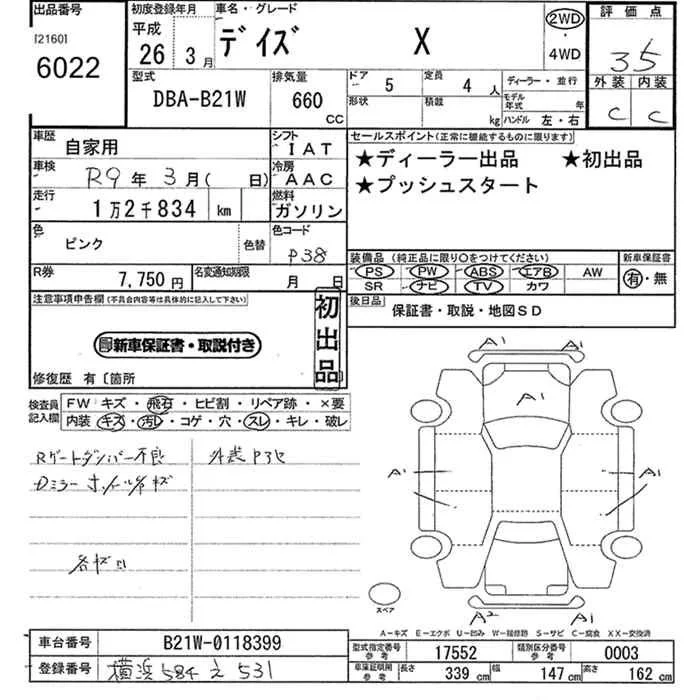 出品番号 初度登録年月 車名・グレード 評価点
[2160] 平成 2WD
6022 26年 3月 デイズ X ・ 35
4WD
型式 排気量 ドア 5 定員 4人 ディーラー・並行 外装 内装
DBA-B21W 660 CC 形状 積載 kg モデル年式 年 C C
ハンドル 左・右
車歴 自家用 シフト IAT セールスポイント(正常に機能するものに限ります)
車検 R9年 3月( 日) 冷房 AAC ★ディーラー出品 ★初出品
走行 1万2千834 km 燃料 ガソリン ★プッシュスタート
色 ピンク 色替 色コード P38
装備品(純正品に限り○をつけてください) 新車保証書
R券 7,750円 名変通知期限 月 日 PS PW ABS エアB AW 有・無
SR ナビ TV カワ
注意事項申告欄(不具合内容等は具体的に記入して下さい) 初出品 後日品 保証書・取説・地図SD
新車保証書・取説付き
修復歴 有〔箇所
検査員記入欄 FW キズ・飛石・ヒビ割・リペア跡・×要
内装 キズ・汚レ・コゲ・穴・スレ・キレ・破レ
A1 A1
A1
Rゲートダンパー不良
A1 A1
A2 A1
スペア
A-キズ E-エクボ U-凹み W-補修跡 S-サビ C-腐食 XX-交換済
車台番号 B21W-0118399 型式指定番号 参考 17552 類別区分番号 参考 0003
登録番号 横浜 584 え 531 車庫証明用 参考 長さ 339 cm 幅 147 cm 高さ 162 cm